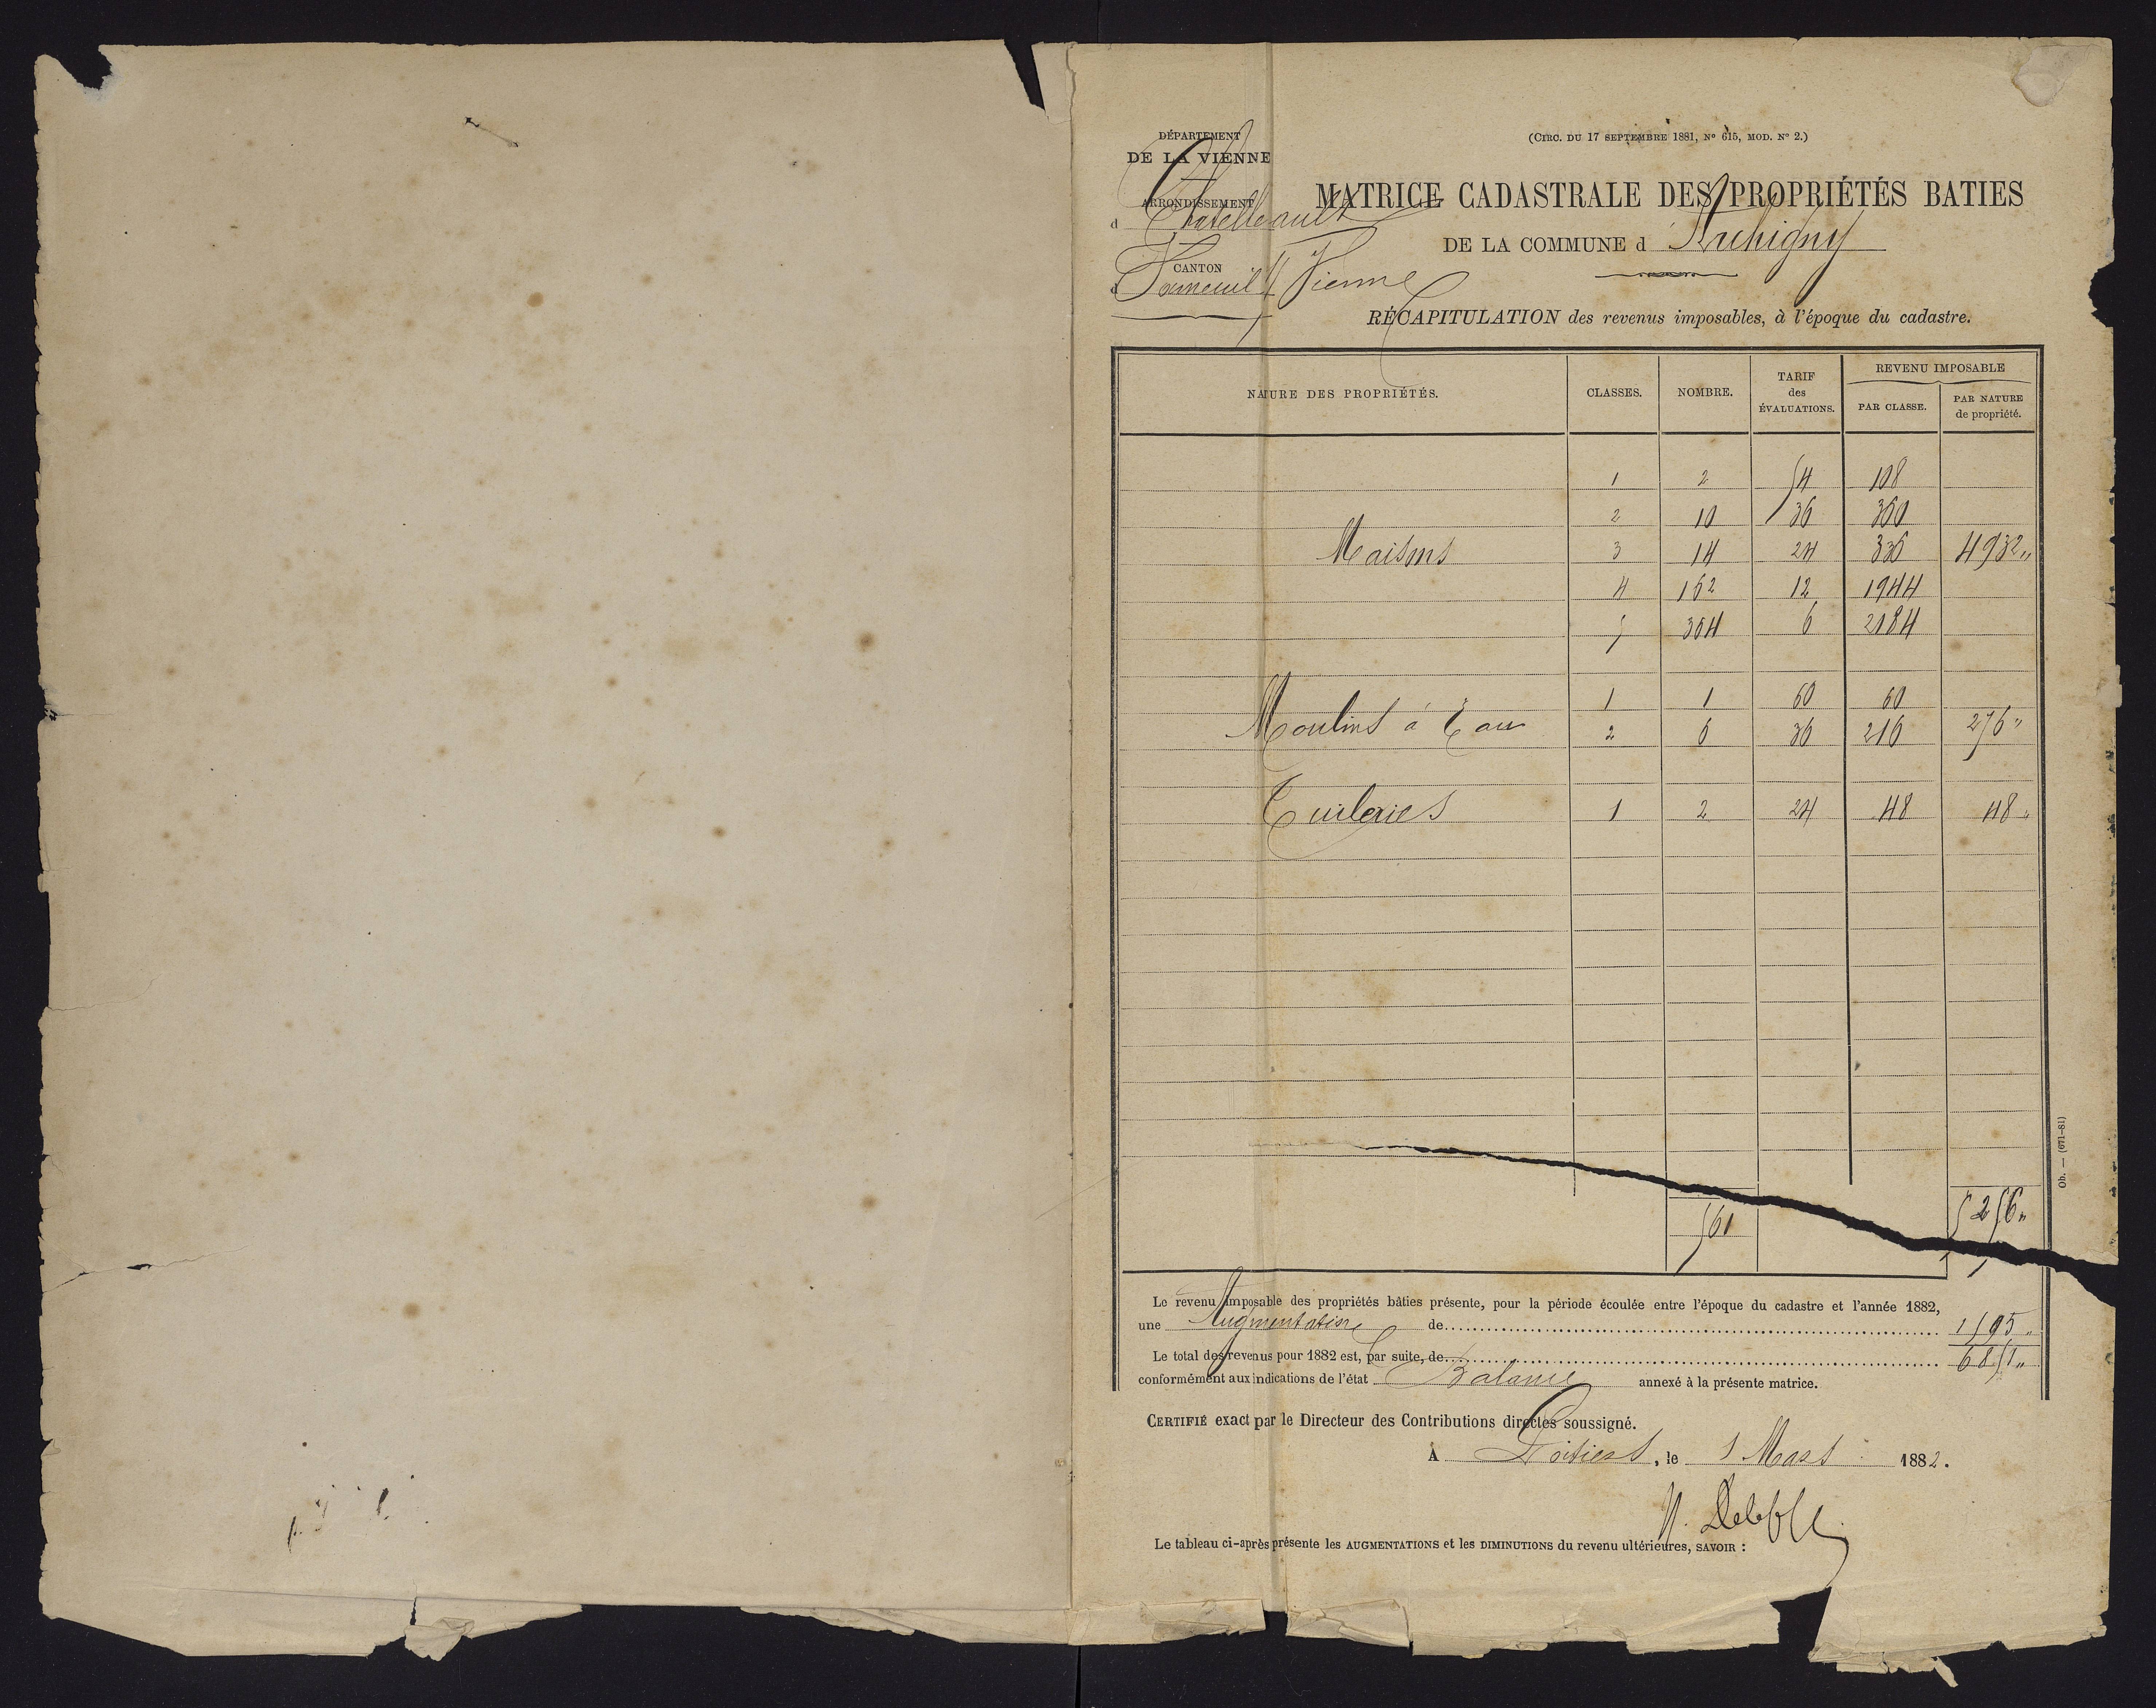 DÉPARTEMENT
DE LA VIENNE
ARRONDISSEMENT
d Chatelleault
CANTON
d Vouneuil s/ Vienne
(CIRC. DU 17 SEPTEMBRE 1881, Nº 615, MOD. Nº 2.)
MATRICE CADASTRALE DES PROPRIÉTÉS BATIES
DE LA COMMUNE d Archigny
RÉCAPITULATION des revenus imposables, à l'époque du cadastre.
NATURE DES PROPRIÉTÉS. CLASSES. NOMBRE. TARIF des ÉVALUATIONS. REVENU IMPOSABLE PAR CLASSE. PAR NATURE de propriété.
1 2 54 108
2 10 36 360
Maisons 3 14 24 336 4932 "
4 162 12 1944
5 364 6 2184
1 1 60 60
Moulins à Eau 2 6 36 216 276 "
Tuileries 1 2 24 48 48 "
561 5256 "
Le revenu imposable des propriétés bâties présente, pour la période écoulée entre l'époque du cadastre et l'année 1882,
une Augmentation de 1595 "
Le total des revenus pour 1882 est, par suite, de 6851 "
conformément aux indications de l'état Balance annexé à la présente matrice.
CERTIFIÉ exact par le Directeur des Contributions directes soussigné.
A Poitiers, le 1 Mars 1882.
Le tableau ci-après présente les AUGMENTATIONS et les DIMINUTIONS du revenu ultérieures, SAVOIR :
Ob. — (671-81)